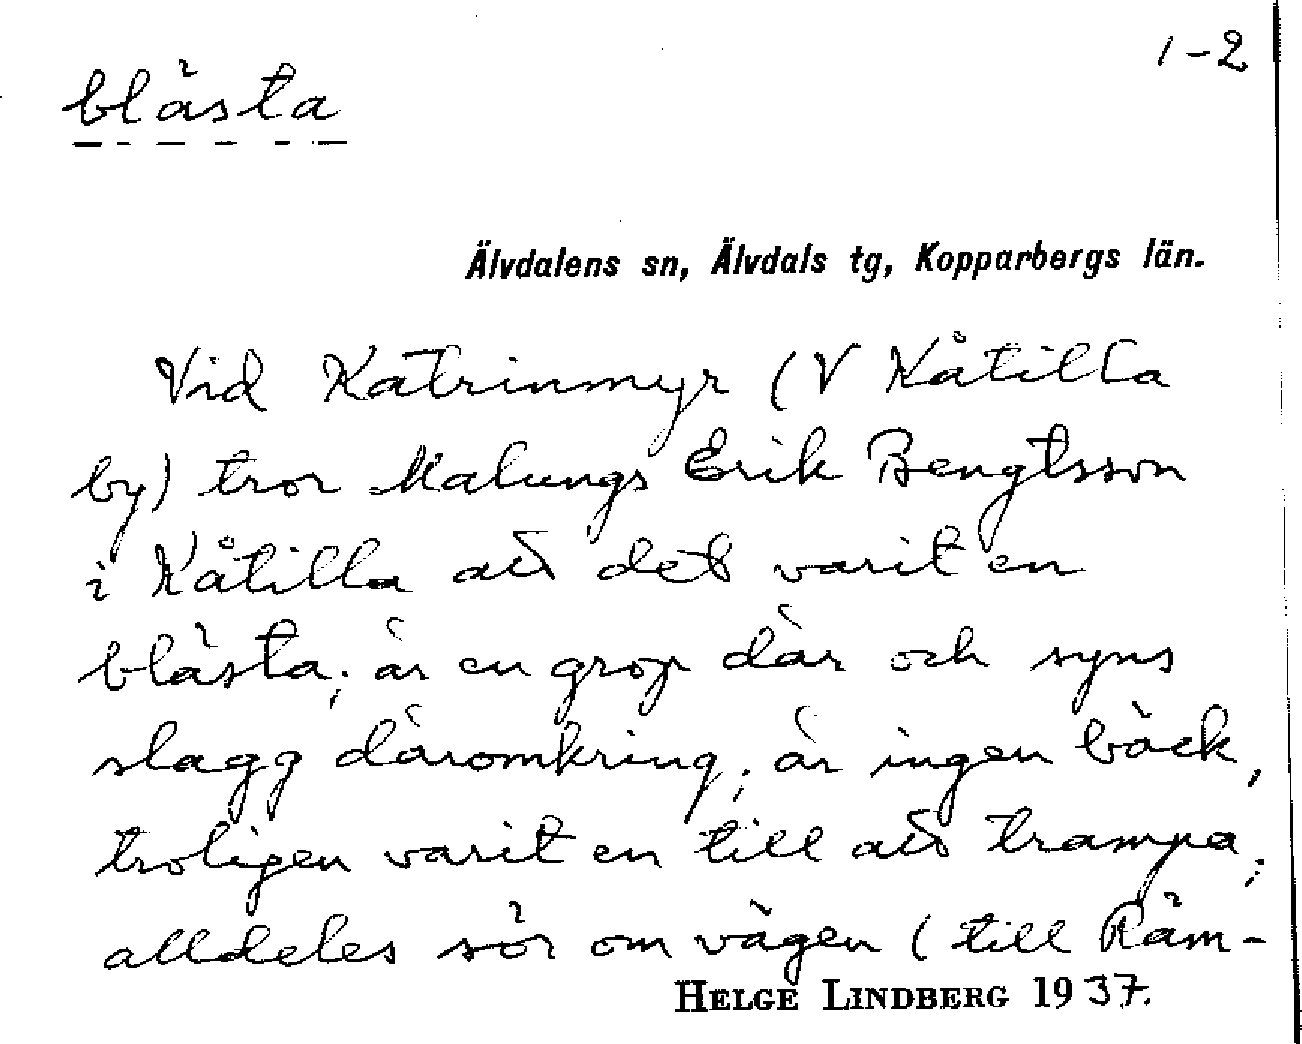 1-2
blästa
Älvdalens sn, Älvdals tg, Kopparbergs län.
Vid Katrinmyr (V Kåtilla
by) tror Malungs Erik Bengtsson
i Kåtilla att det varit en
blästa; är en grop där och syns
slagg däromkring; är ingen bäck,
troligen varit en till att trampa;
alldeles sör om vägen (till Räm-
HELGE LINDBERG 1937.